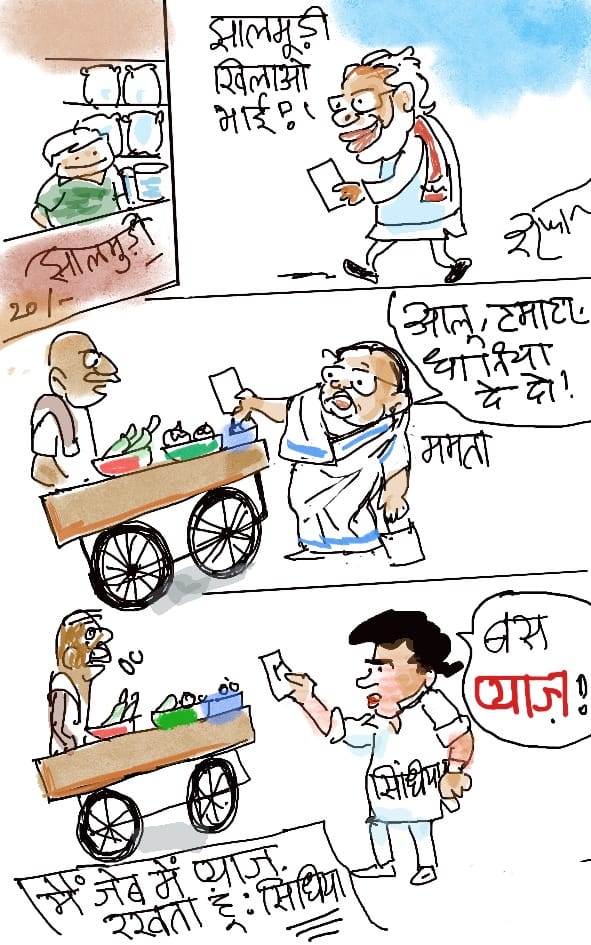 झालमूड़ी
खिलाओ
भाई!
झालमुड़ी
20/-
आलू, टमाटर
धनिया
दे दो!
ममता
बस
प्याज़!
सिंधिया
मैं जेब में प्याज
रखता हूं: सिंधिया